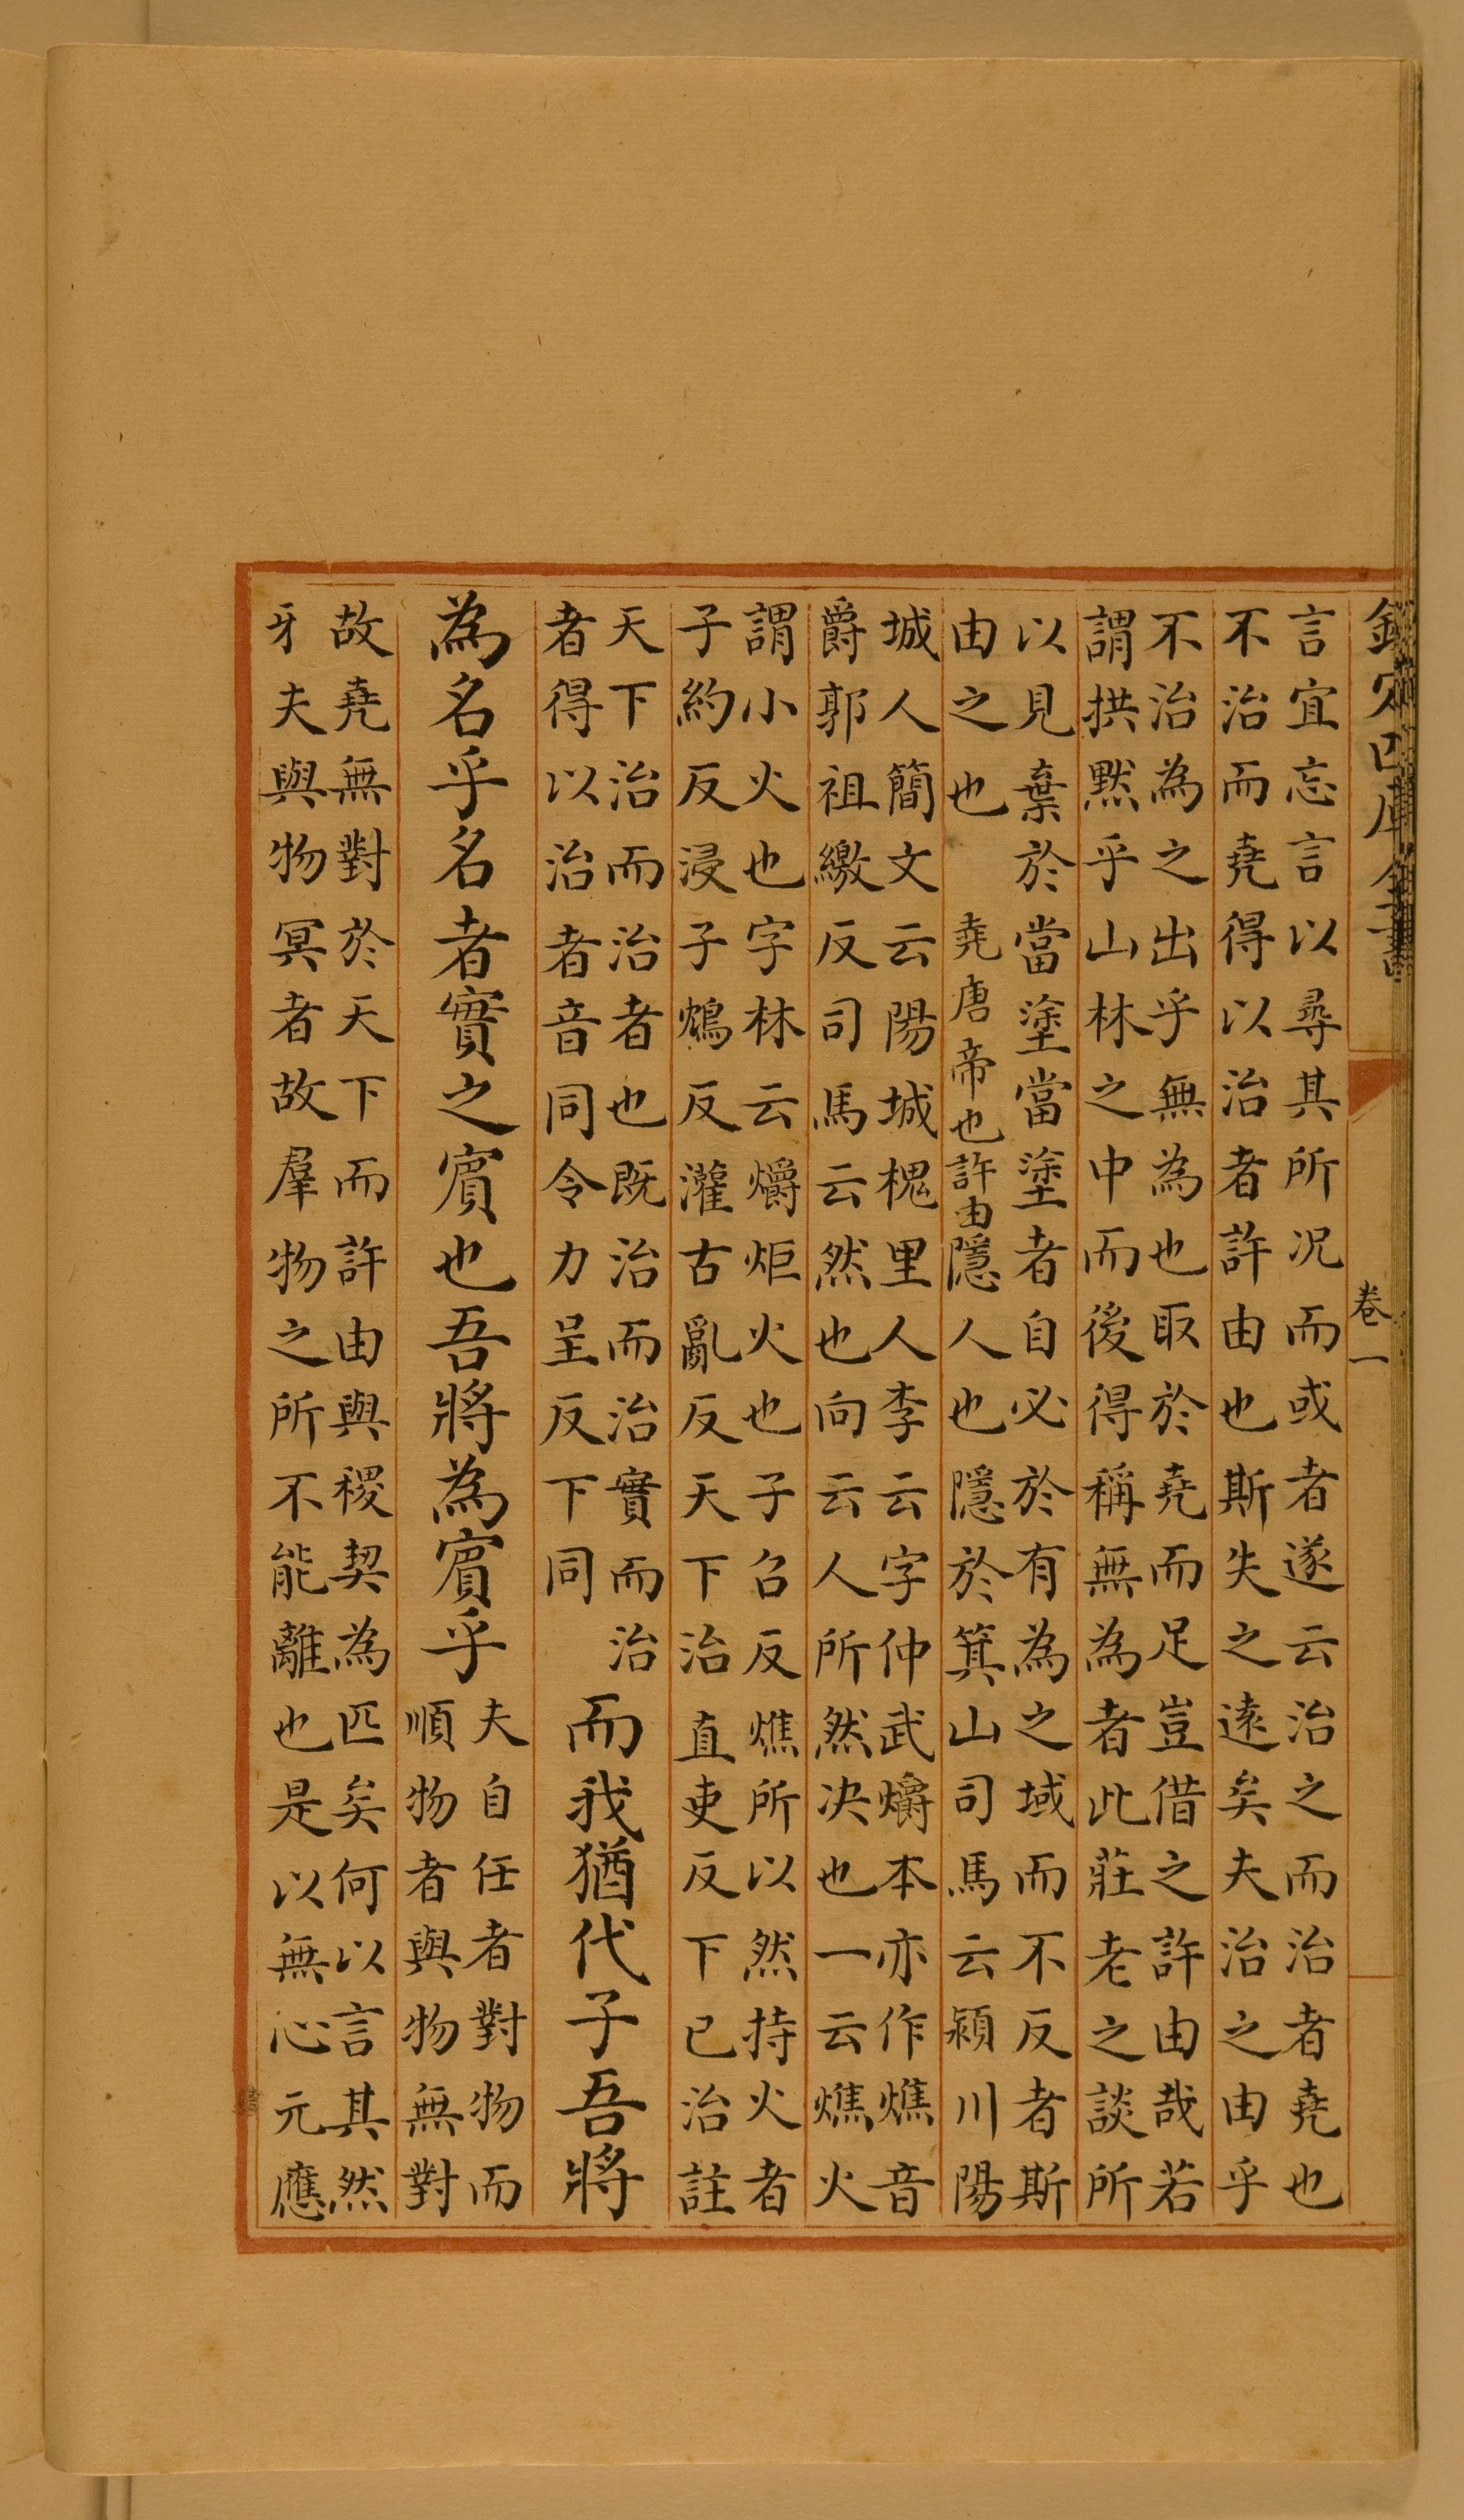 欽定四庫全書
卷一
言宜忘言以尋其所況而或者遂云治之而治者堯也
不治而堯得以治者許由也斯失之遠矣夫治之由乎
不治為之出乎無為也取於堯而足豈借之許由哉若
謂拱默乎山林之中而後得稱無為者此莊老之談所
以見棄於當塗當塗者自必於有為之域而不反者斯
由之也　堯唐帝也許由隱人也隱於箕山司馬云潁川陽
城人簡文云陽城槐里人李云字仲武爝本亦作燋音
爵郭祖繳反司馬云然也向云人所然決也一云燋火
謂小火也字林云爝炬火也子召反燋所以然持火者
子約反浸子鴆反灌古亂反天下治直吏反下已治註
天下治而治者也既治而治實而治
者得以治者音同令力呈反下同
而我猶代子吾將
為名乎名者實之賓也吾將為賓乎
夫自任者對物而
順物者與物無對
故堯無對於天下而許由與稷契為匹矣何以言其然
牙夫與物冥者故羣物之所不能離也是以無心元應